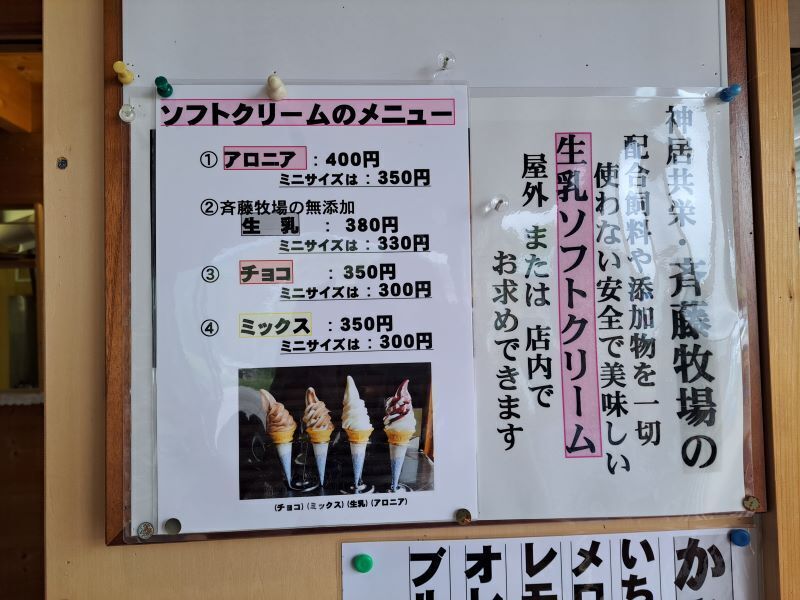 ソフトクリームのメニュー
① アロニア : 400円
ミニサイズは : 350円
②斉藤牧場の無添加
生 乳 : 380円
ミニサイズは : 330円
③ チョコ : 350円
ミニサイズは : 300円
④ ミックス : 350円
ミニサイズは : 300円
(チョコ) (ミックス) (生乳) (アロニア)
神居共栄・斉藤牧場の
配合飼料や添加物を一切
使わない安全で美味しい
生乳ソフトクリーム
屋外 または 店内で
お求めできます
か
いち
メロ
レモ
オレ
ブル